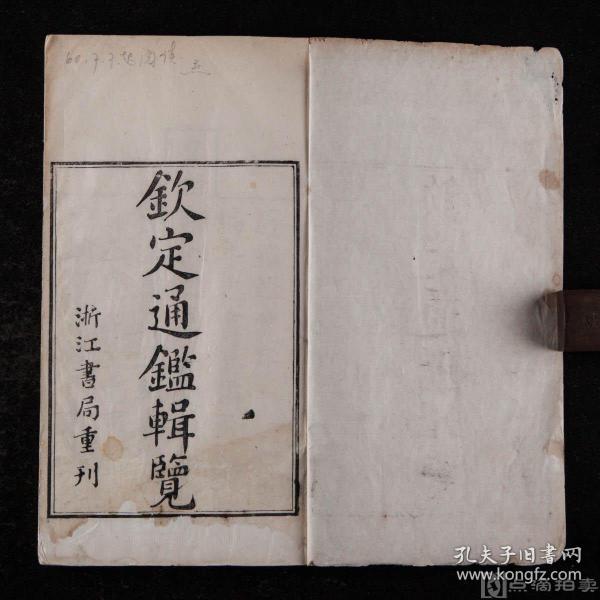 60.7.7.起阅读
欽定通鑑輯覽
浙江書局重刊
孔夫子旧書网
www.kongfz.com
点滴拍卖